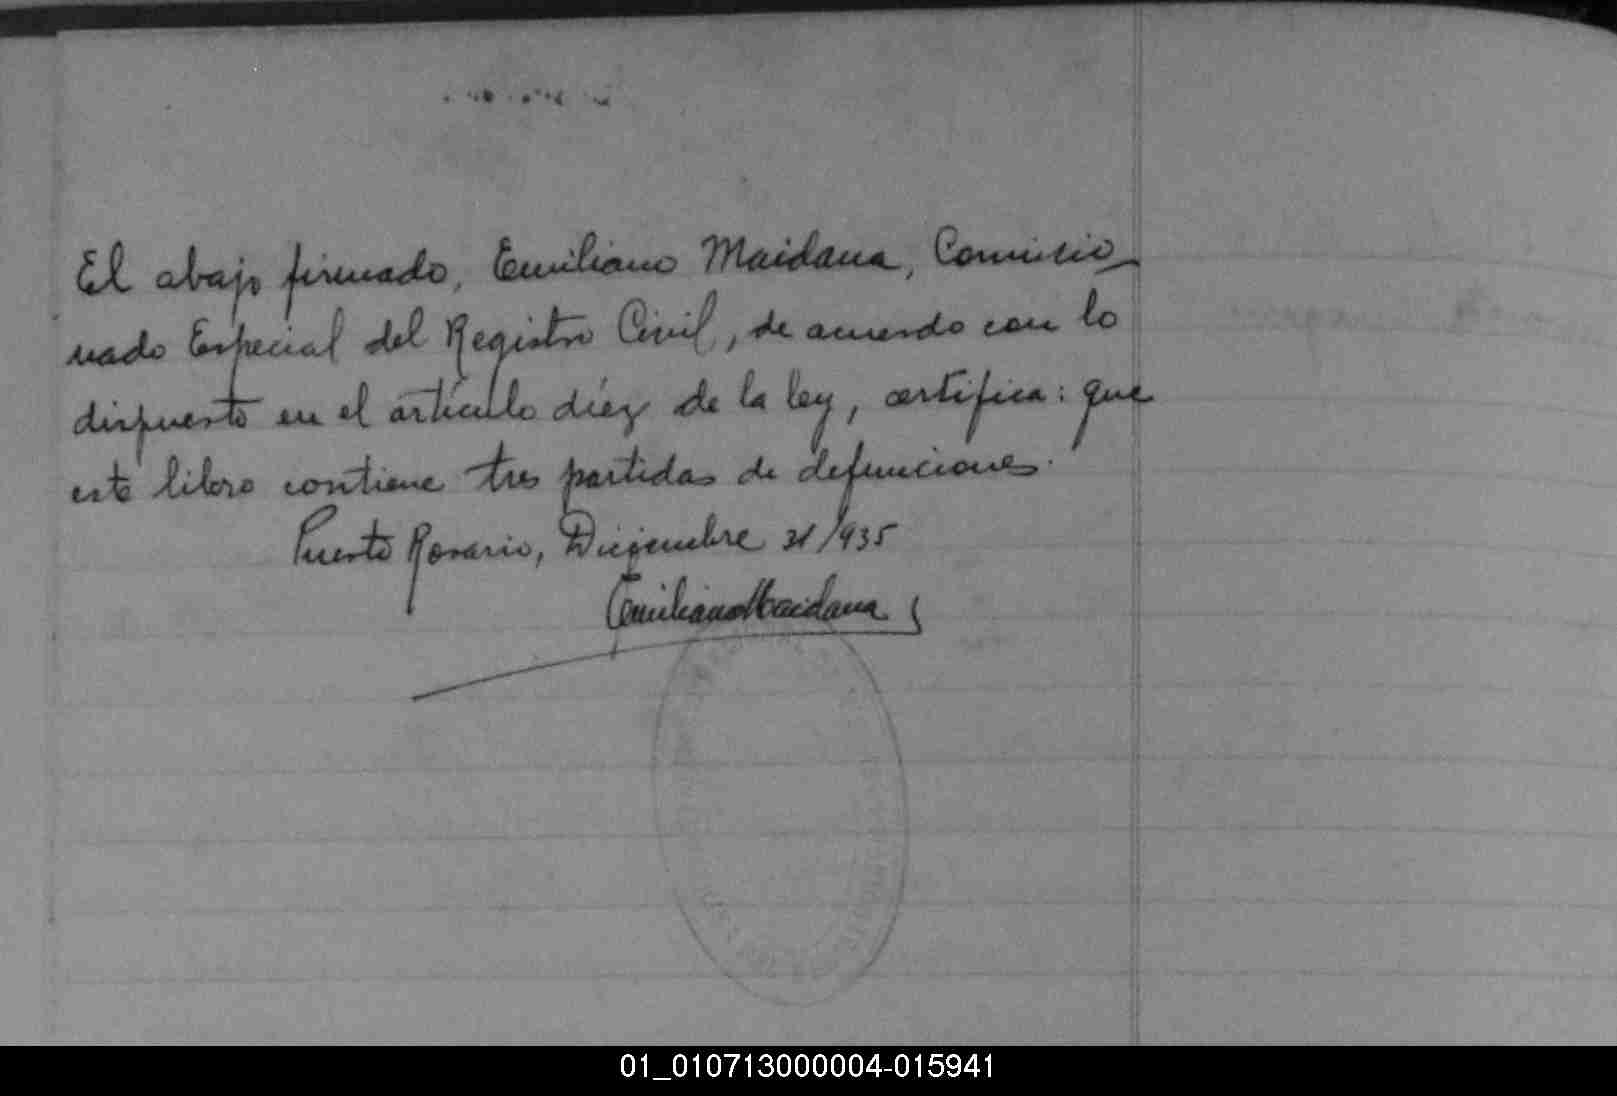 El abajo firmado, Emiliano Maidana, Comisio-
nado Especial del Registro Civil, de acuerdo con lo
dispuesto en el artículo diéz de la ley, certifica: que
este libro contiene tres partidas de defunciones.
Puerto Rosario, Diciembre 31/935
Emiliano Maidana
01_010713000004-015941